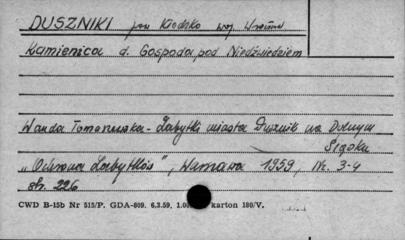 DUSZNIKI pow. Kłodzko woj. Wrocław
Kamienica d. Gospoda pod Niedźwiedziem
Wanda Tomaszewska - Zabytki miasta Dusznik na Dolnym
Śląsku
„Ochrona Zabytków", Warszawa 1959, Nr. 3-4
str. 226
CWD B-15b Nr 515/P. GDA-609. 6.3.59, karton 180/V.